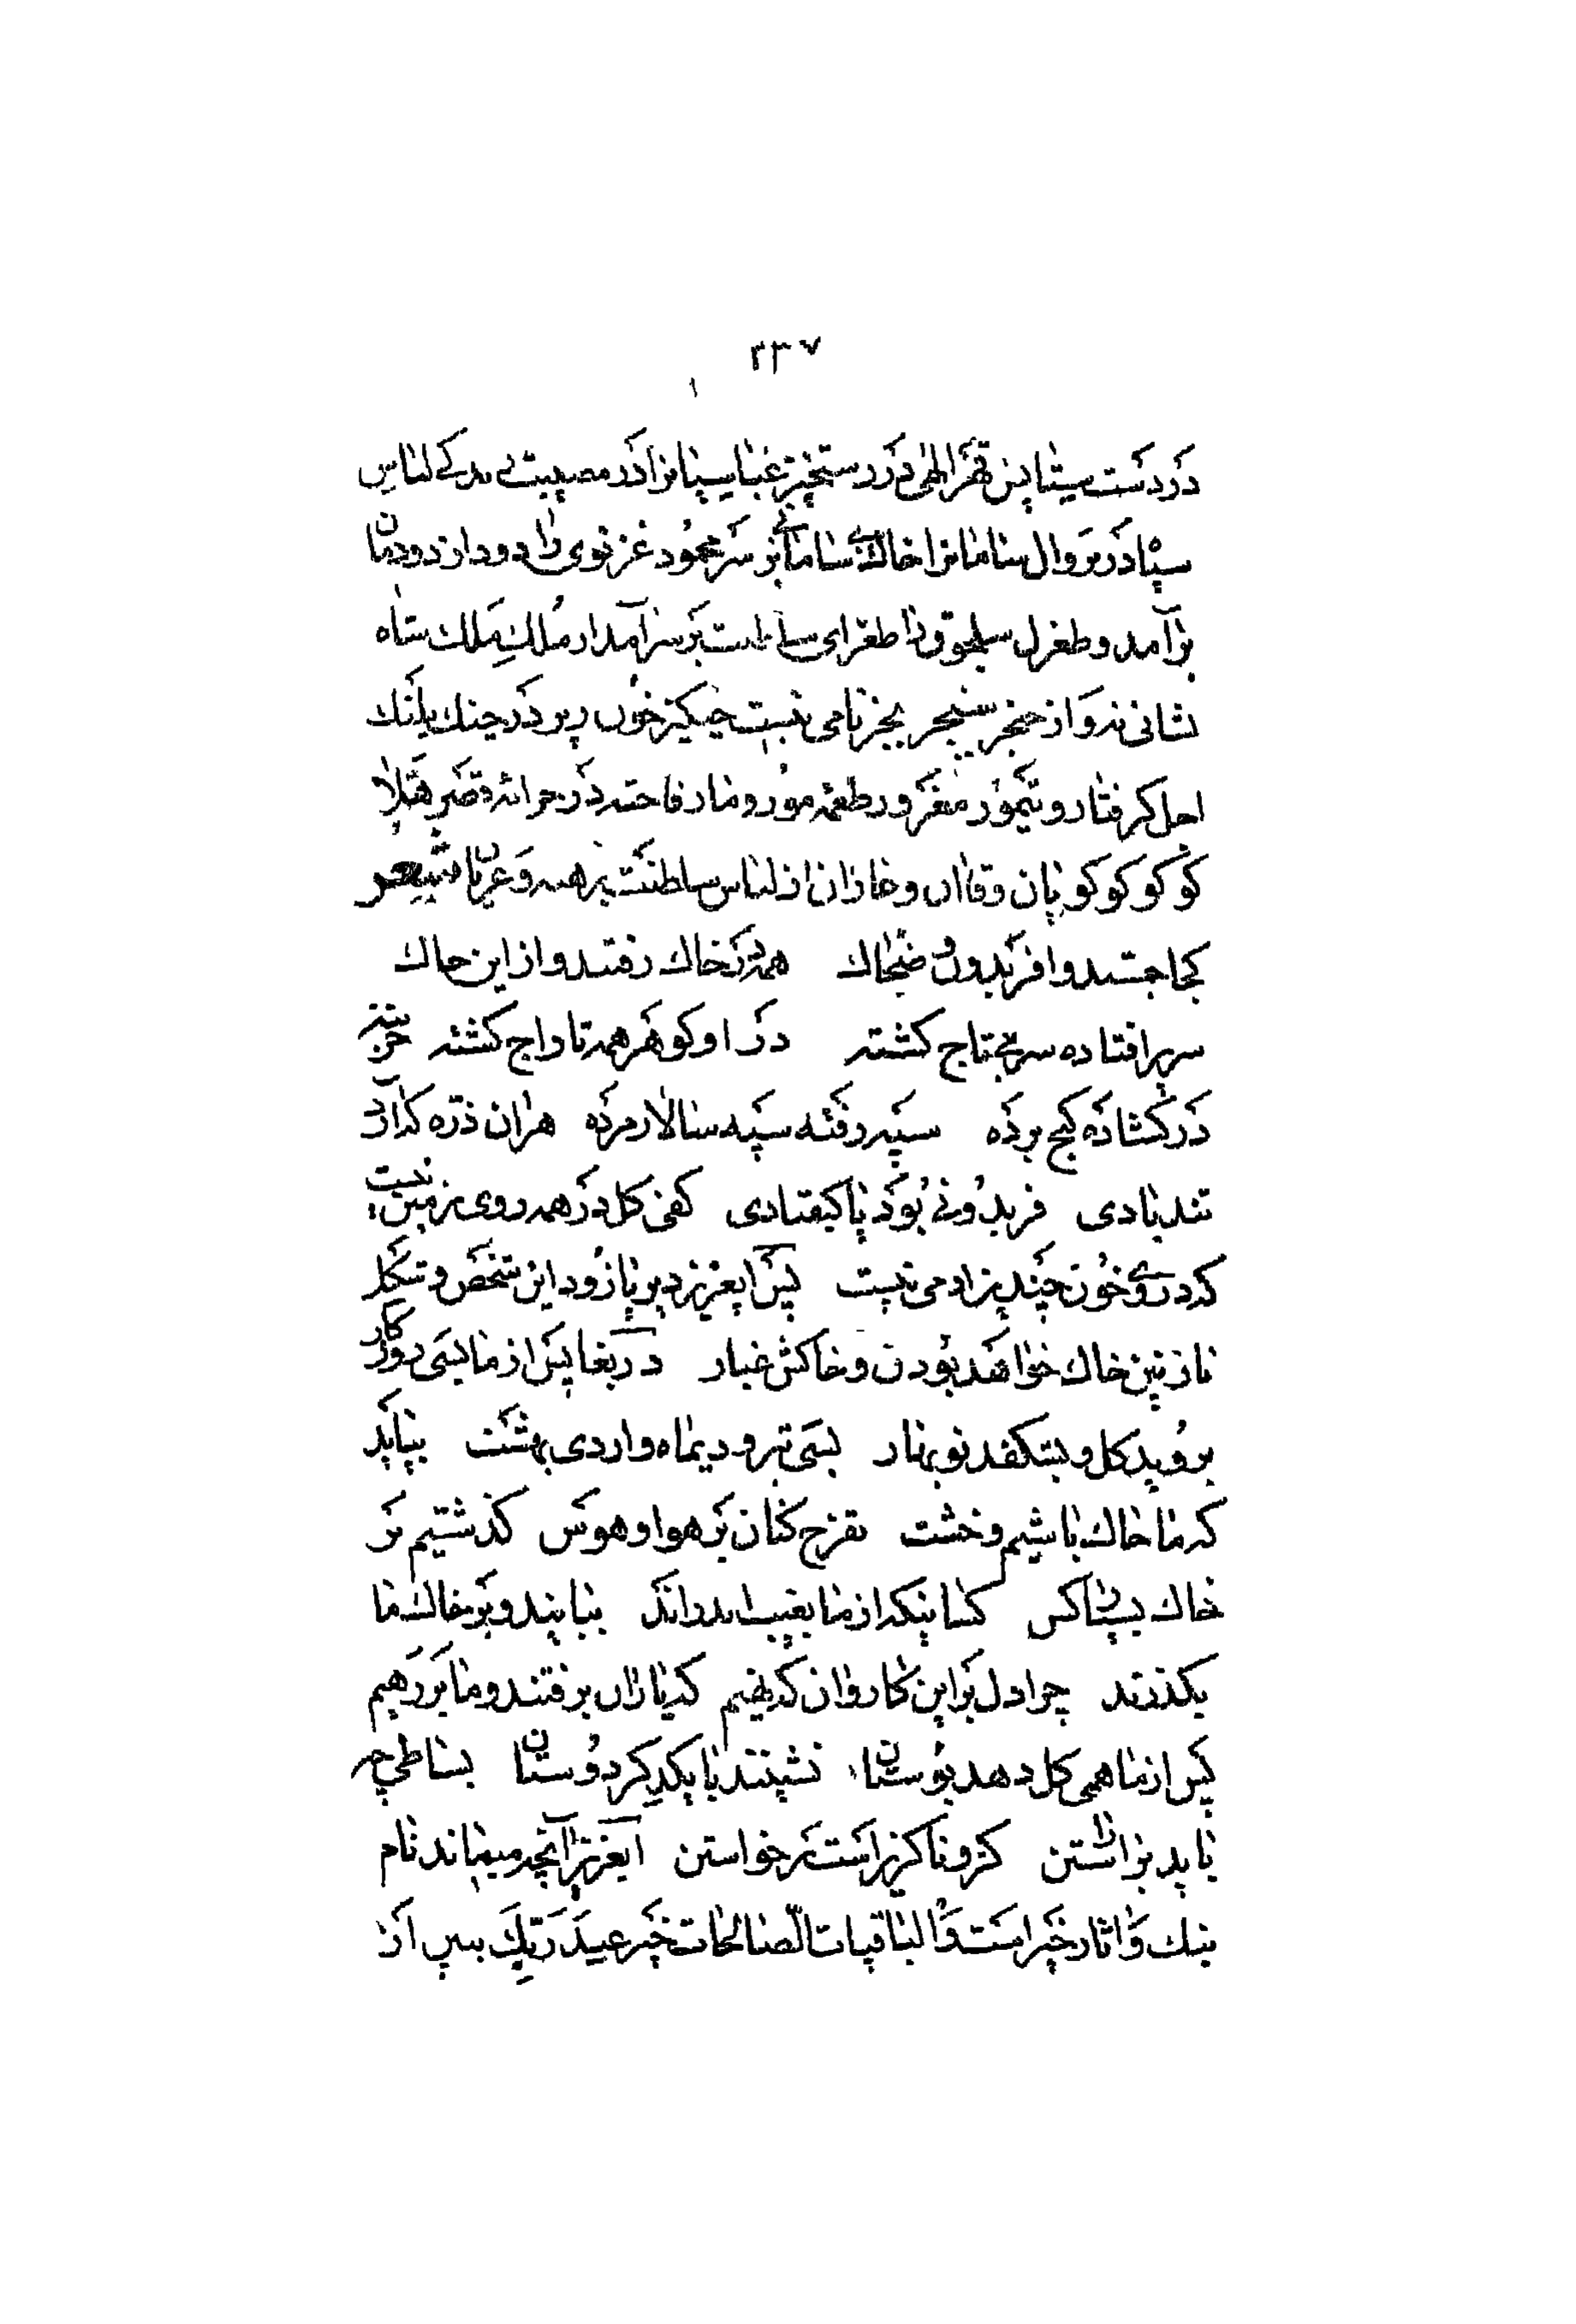 ۲۳۷
در دست سیتاین قهر الهی در رستخیز عباسیانرا در مصیبت لباس
سیاه در بر وال سامانرا خاک بی سامانی بر سر محمود غزنوی را دود از دودمان
برآمد و طغرل سلجوق را طغرای سلطنت بر سر آمد از ملك ملك شاه
نشانی نه و از خنجر سنجر بجز نامی نیست چنکیز خون ریز در چنك پلنك
اجل کرفتار و تیمور مغرور طعمه مور و مار فاخته در قصر هلا
کو کو کو کو زبان و قاآن و غازان از لباس سلطنت برهنه و عریان شعر
کجا جشید و افریدون و ضحاك همه در خاك رفتند و از این خاك
سریر افتاده سر بی تاج کشته در او کوهر همه تاراج کشته خزینه
در کشاده کنج برده سپه رفته سپه سالار مرده هران ذره که آرد
تند بادی فریدونی بود یا کیقبادی کفی کل در همه روی زمین نیست
که در وی خون چندین ادمی نیست پس ایعزیز دیر یا زود این شخص و شکل
نازنین خاك خواهد بودن و خاکش غبار دریغا پس از ما بسی روزکار
بروید کل و بشکفد نوبهار بسی تیر و دیماه و اردی بهشت بیاید
که ما خاك باشیم و خشت تفرج کنان بر هوا و هوس کذشتیم بر
خاك بسیار کس کسانیکه از ما بغیب اندراند بیایند و بر خاك ما
بکذرند چرا دل بر این کاروان که نهیم که یاران برفتند و ما بر رهیم
پس از ما همی کل دهد بوستان نشینند با یکدکر دوستان بساطی چه
باید براراستن کزو ناکزیر است برخواستن ایعزیز آنچه میماند نام
نیك و اثار خیر است والباقیات الصالحات خیر عند ربك پس از